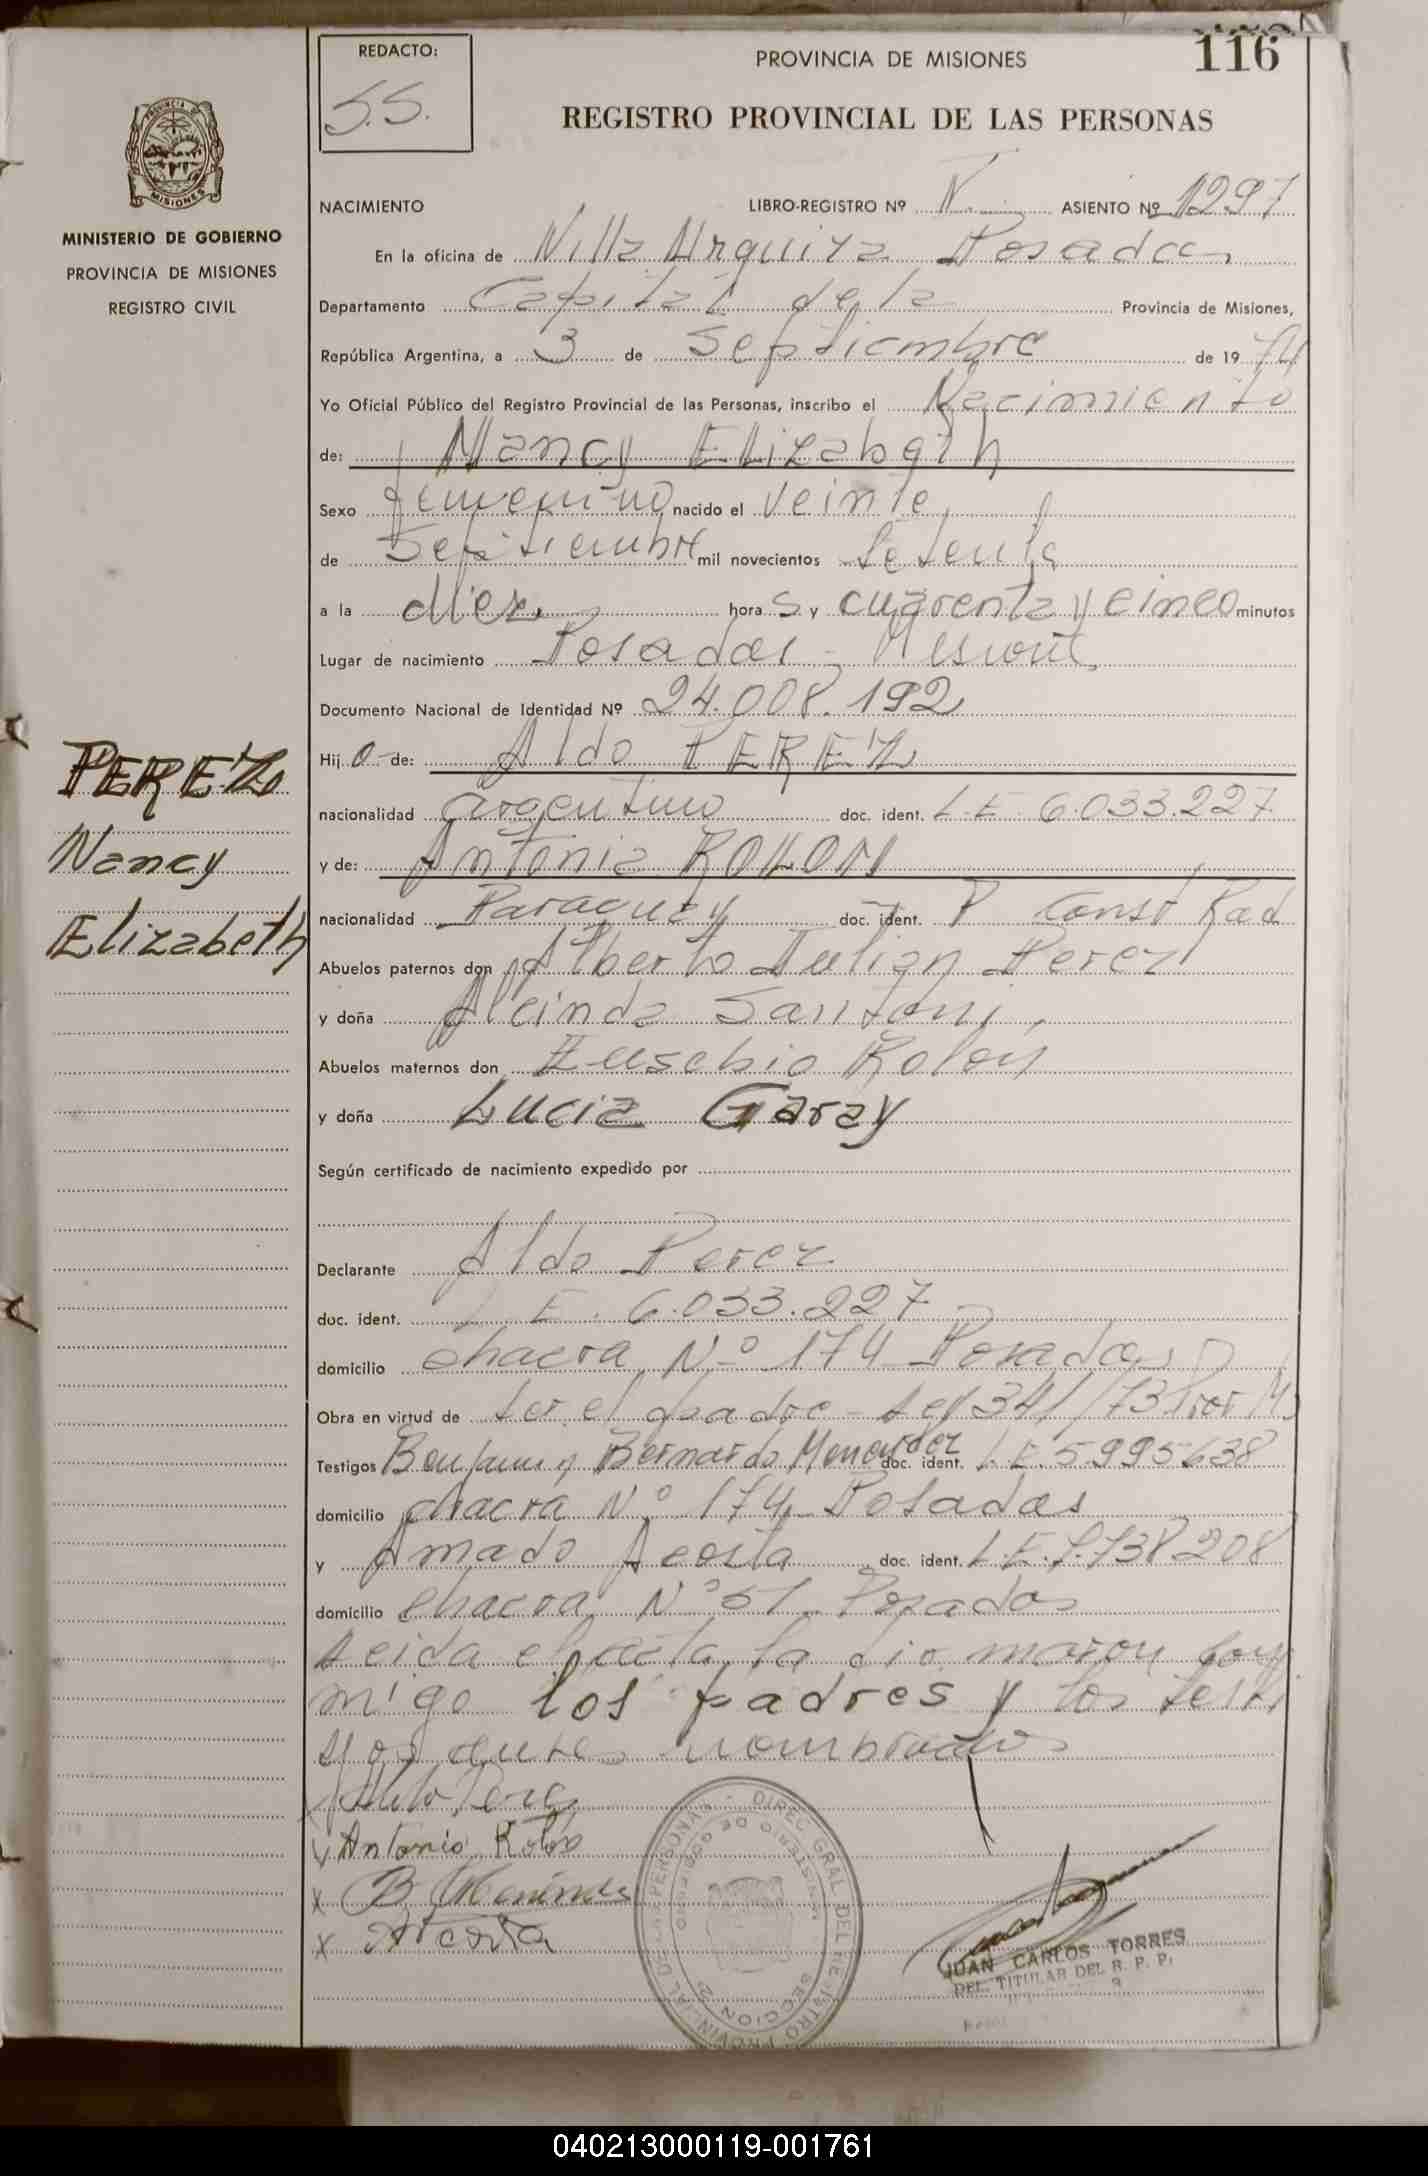 REDACTO:
S.S.
PROVINCIA DE MISIONES
116
REGISTRO PROVINCIAL DE LAS PERSONAS
PROVINCIA DE
MISIONES
MINISTERIO DE GOBIERNO
PROVINCIA DE MISIONES
REGISTRO CIVIL
NACIMIENTO LIBRO-REGISTRO Nº ASIENTO Nº 1297
En la oficina de Villa Urquiza Posadas
Departamento Capital de la Provincia de Misiones,
República Argentina, a 3 de Septiembre de 19 74
Yo Oficial Público del Registro Provincial de las Personas, inscribo el Nacimiento
de: Nancy Elizabeth
Sexo femenino nacido el veinte
de Septiembre mil novecientos setenta
a la diez hora s y cuarenta y cinco minutos
Lugar de nacimiento Posadas - Misiones
Documento Nacional de Identidad Nº 24.008.192
Hij a de: Aldo PEREZ
nacionalidad argentino doc. ident. L.E. 6.033.227
y de: Antonia ROLON
nacionalidad Paraguay doc. ident. P Const Rad
Abuelos paternos don Alberto Julian Perez
y doña Alcinda Santoni
Abuelos maternos don Eusebio Rolon
y doña Lucia Garay
Según certificado de nacimiento expedido por
Declarante Aldo Perez
doc. ident. L.E. 6.033.227
domicilio chacra Nº 174 Posadas
Obra en virtud de ser el padre - Ley 341/73 Prov M
Testigos Benjamin Bernardo Menendez doc. ident. L.E. 5995638
domicilio chacra Nº 174 Posadas
y Amado Acosta doc. ident. L.E. 7.738208
domicilio chacra Nº 51 Posadas
Leida el acta la firmaron con
migo los padres y los testi
gos antes nombrados
Aldo Perez
x Antonia Rolon
x B Menendez
x Acosta
DIREC. GRAL. DEL REGISTRO PROVINCIAL DE LAS PERSONAS
MINISTERIO DE GOBIERNO
SECCION 2
JUAN CARLOS TORRES
DEL. TITULAR DEL R. P. P.
PEREZ
Nancy
Elizabeth
040213000119-001761